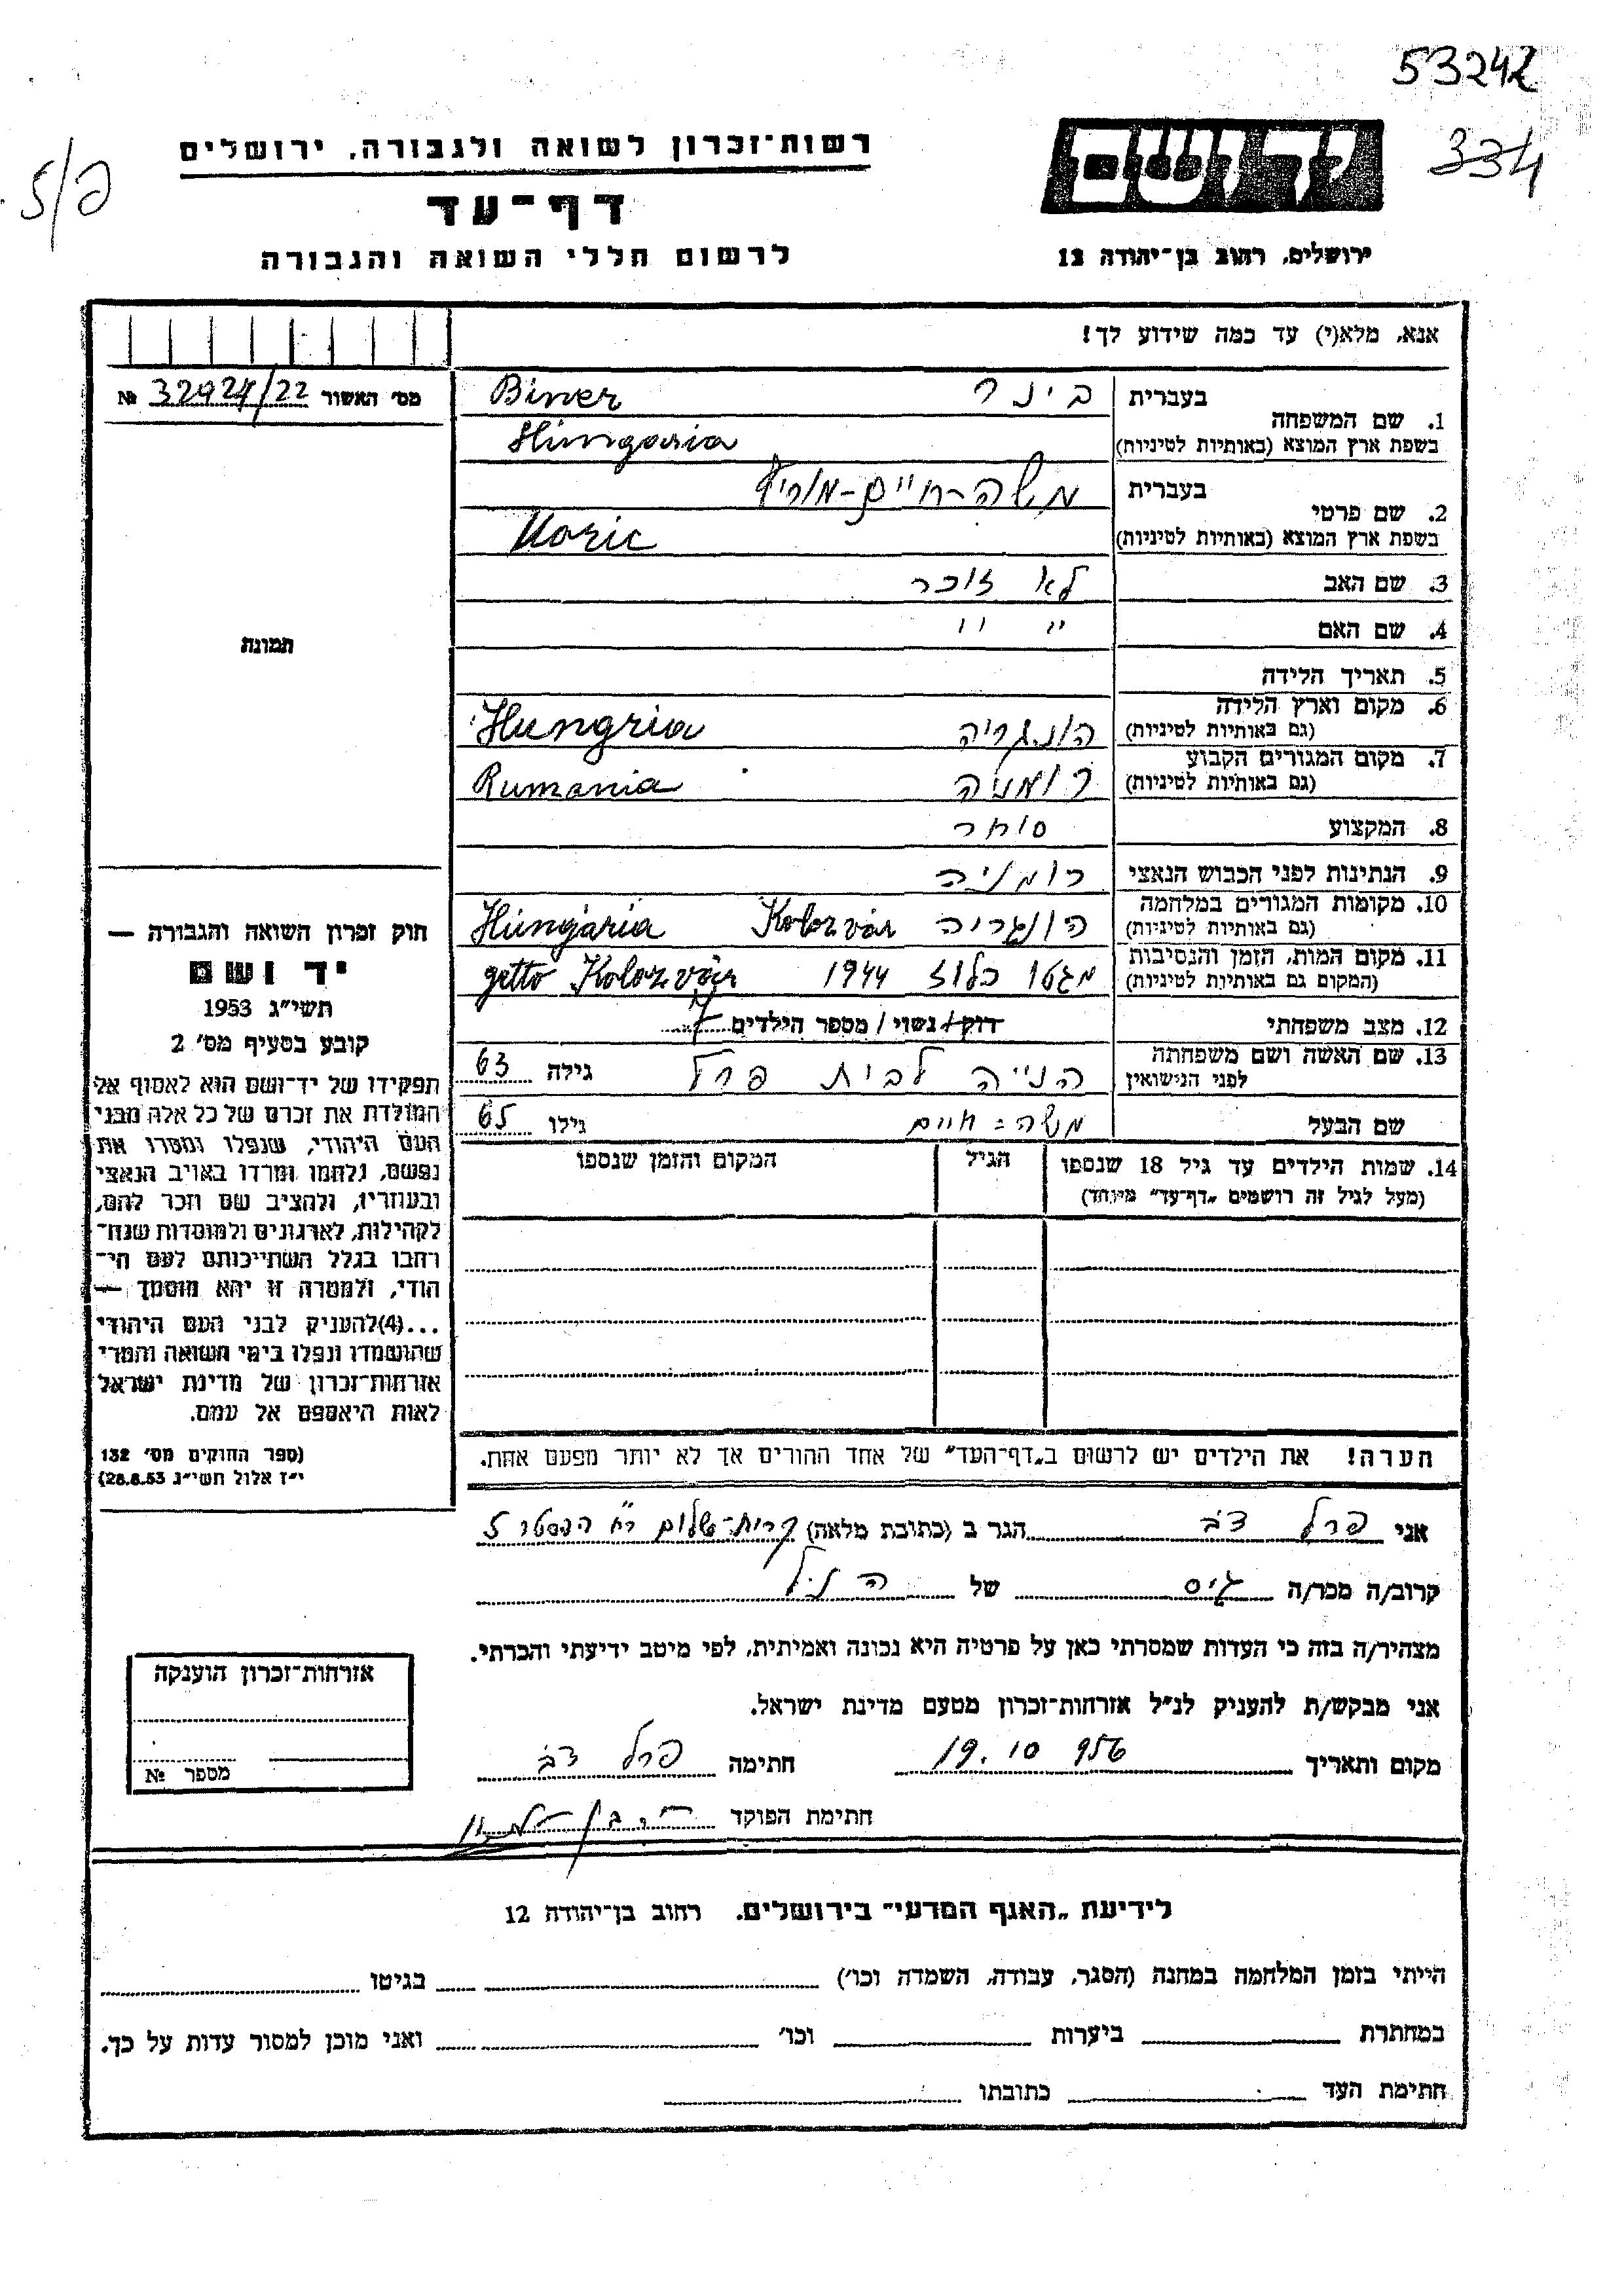 53242
334
רשות־זכרון לשואה ולגבורה, ירושלים
דף־עד
לרשום חללי השואה והגבורה
יד ושם
ירושלים, רחוב בן־יהודה 12
אנא, מלא(י) עד כמה שידוע לך!
מס' האשור 32924/22 №
1. שם המשפחה
בעברית בינר Biner
בשפת ארץ המוצא (באותיות לטיניות) Hungaria
2. שם פרטי
בעברית משה-חיים-מוריץ
בשפת ארץ המוצא (באותיות לטיניות) Moric
3. שם האב לא זוכר
4. שם האם " "
5. תאריך הלידה
6. מקום וארץ הלידה הונגריה Hungria
(גם באותיות לטיניות)
7. מקום המגורים הקבוע רומניה Rumania
(גם באותיות לטיניות)
8. המקצוע סוחר
9. הנתינות לפני הכבוש הנאצי רומניה
10. מקומות המגורים במלחמה הונגריה Kolozvár Hungária
(גם באותיות לטיניות)
11. מקום המות, הזמן והנסיבות מגטו כלוז 1944 getto Kolozvár
(המקום גם באותיות לטיניות)
12. מצב משפחתי רוק/ נשוי / מספר הילדים
13. שם האשה ושם משפחתה הנייה לבית פרל גילה 63
לפני הנישואין
שם הבעל משה-חיים גילו 65
14. שמות הילדים עד גיל 18 שנספו הגיל המקום והזמן שנספו
(מעל לגיל זה רושמים „דף־עד" מיוחד)
הערה! את הילדים יש לרשום ב„דף־העד" של אחד ההורים אך לא יותר מפעם אחת.
תמונה
חוק זכרון השואה והגבורה —
יד ושם
תשי"ג 1953
קובע בסעיף מס' 2
תפקידו של יד־ושם הוא לאסוף אל
המולדת את זכרם של כל אלה מבני
העם היהודי, שנפלו ומסרו את
נפשם, נלחמו ומרדו באויב הנאצי
ובעוזריו, ולהציב שם וזכר להם,
לקהילות, לארגונים ולמוסדות שנח־
רבו בגלל השתייכותם לעם הי־
הודי, ולמטרה זו יהא מוסמך —
...(4)להעניק לבני העם היהודי
שהושמדו ונפלו בימי השואה והמרי
אזרחות־זכרון של מדינת ישראל
לאות היאספם אל עמם.
(ספר החוקים מס' 132
י"ז אלול תשי"ג 28.8.53)
אני פרל דב הגר ב (כתובת מלאה) קרית-שלום רח
קרוב/ה מכר/ה גיס של הנ"ל
מצהיר/ה בזה כי העדות שמסרתי כאן על פרטיה היא נכונה ואמיתית, לפי מיטב ידיעתי והכרתי.
אני מבקש/ת להעניק לנ"ל אזרחות־זכרון מטעם מדינת ישראל.
מקום ותאריך 19.10 956 חתימה פרל דב
חתימת הפוקד
אזרחות־זכרון הוענקה
מספר №
לידיעת „האגף המדעי" בירושלים, רחוב בן־יהודה 12
הייתי בזמן המלחמה במחנה (הסגר, עבודה, השמדה וכו') בגיטו
במחתרת ביערות וכו' ואני מוכן למסור עדות על כך.
חתימת העד כתובתו